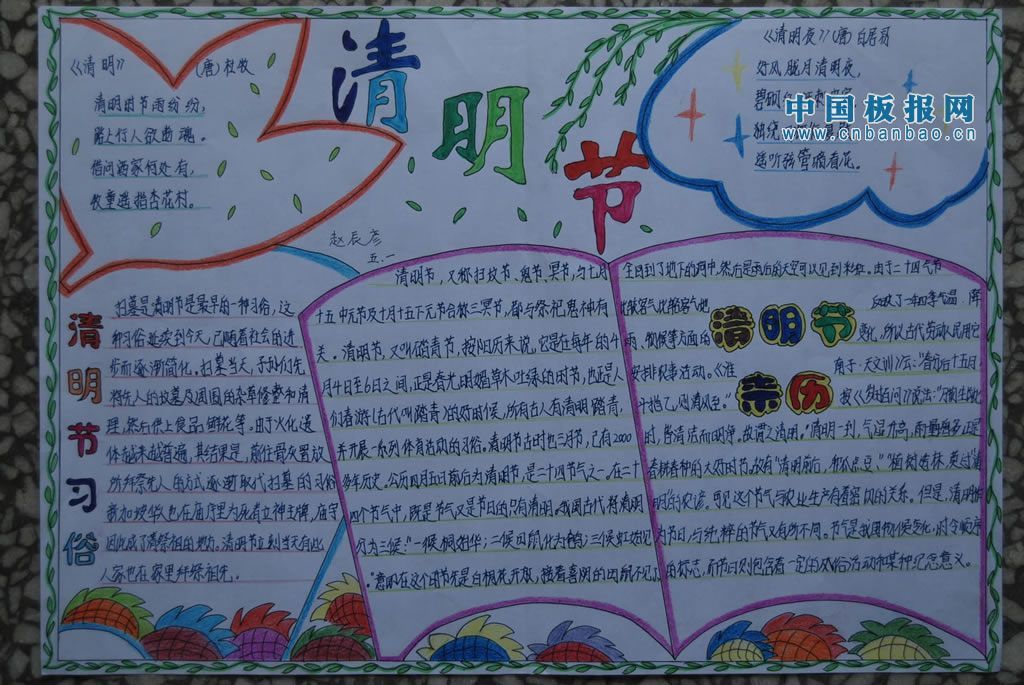 《清明》
(唐)杜牧
清明时节雨纷纷,
路上行人欲断魂。
借问酒家何处有,
牧童遥指杏花村。
清明节
《清明夜》(唐)白居易
好风胧月清明夜,
碧砌
独绕
遥听弦管暗看花。
中国板报网
www.cnbanbao.cn
赵辰彦
五.一
清明节习俗
扫墓是清明节是最早的一种习俗,这
种习俗延续到今天,已随着社会的进
步而逐渐简化。扫墓当天,子孙们先
将先人的坟墓及周围的杂草修整和清
理,然后供上食品鲜花等。由于火化遗
体越来越普遍,其结果是,前往骨灰置放
拜祭先人的方式逐渐取代扫墓的习俗
新加坡华人也在庙宇里为死者立神主牌,庙宇
因此成了清祭祖的地方。清明节立刻当天有此
人家也在家里拜祭祖先。
清明节,又称扫坟节、鬼节、冥节,与七月
十五中元节及十月十五下元节合称三冥节,都与祭祀鬼神有
关。清明节,又叫踏青节,按阳历来说,它是在每年的4
月4日至6日之间,正是春光明媚草木吐绿的时节,也正是人
们春游(古代叫踏青)的好时候,所有古人有清明踏青,
并开展一系列体育活动的习俗。清明节古时也三月节,已有2000
多年历史。公历四月五日前后为清明节,是二十四节气之一。在二十
四个节气中,既是节气又是节日的只有清明。我国古代将清明
为三候:“一候桐始华;二候田鼠化为鹌;三候虹始见
。”意即在这个时节先是白桐花开放,接着喜阴的田鼠不见了
全回到了地下的洞中,然后是雨后的天空可以见到彩虹。由于二十四气节
比较客气比较客气地
反映了一年四季气温、降
雨、物候等方面的
变化,所以古代劳动人民用它
安排农事活动。《淮
南子·天文训》云:“春分后十五日,
清明节亲历
斗指乙,则清风至。”
按《岁时百问》的说法:“万物生长此
时,皆清洁而明净。故谓之清明。”清明一到,气温升高,雨量增多,正是
春耕春种的大好时节。故有“清明前后,种瓜点豆”、“植树造林,莫过清
明”的农谚。可见这个节气与农业生产有着密切的关系。但是,清明作
为节日,与纯粹的节气又有所不同。节气是我国物候变化、时令顺序
的标志,而节日则包含着一定的风俗活动和某种纪念意义。